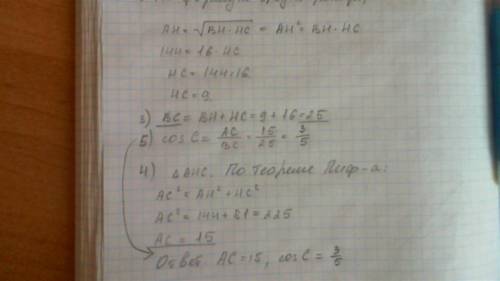 AH = √BH·HC = AH² = BH·HC
144 = 16·HC
HC = 144:16
HC = 9
3) BC = BH + HC = 9 + 16 = 25
5) cos C = AC/BC = 15/25 = 3/5
4) ΔAHC. По теореме Пиф-а:
AC² = AH² + HC²
AC² = 144 + 81 = 225
AC = 15
Ответ. AC = 15, cos C = 3/5